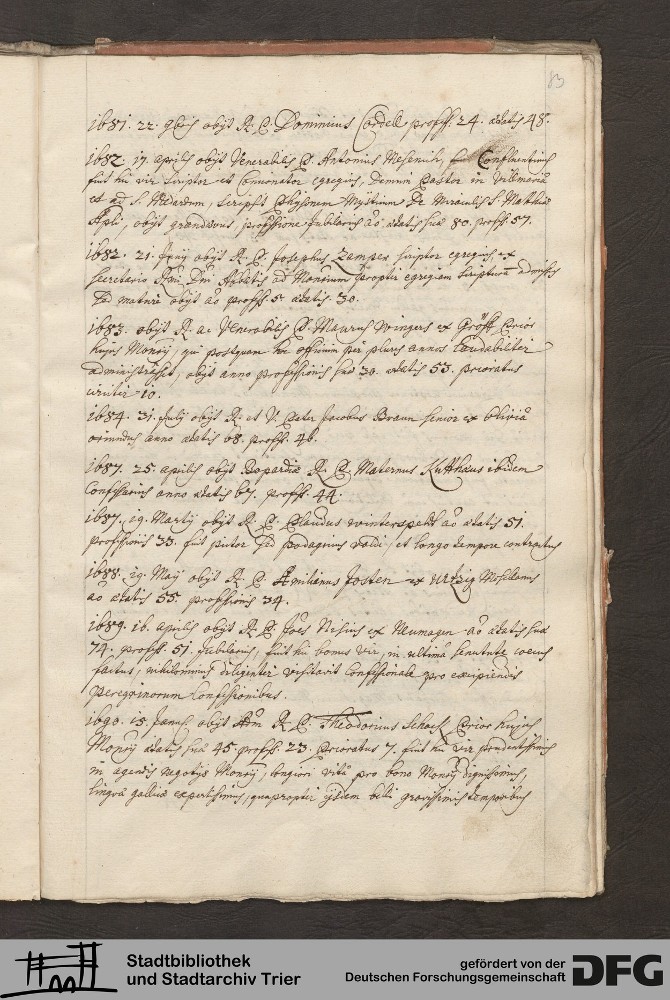 83
1681. 22. 9bris obijt R. P. Dominicus Cordell profess. 24. aetatis 48.
1682. 17. Aprilis obijt Venerabilis P. Antonius
fuit hic vir scriptor et Concionator egregius, demum Pastor in Villmaria
et ad S. Medardum, scripsit de Miraculis S. Mathiae
Apli, obijt grandaevus professione Jubilarius aõ aetatis suae 80. profess. 57.
1682. 21. obijt R. P. Josephus Zamper scriptor egregius, ex
secretario Rmi Dni Abbatis ad propter egregiam scripturã admissus
sed mature obijt aõ profess. 5 aetatis 30.
1683. obijt R. ac Venerabilis P. Maurus Wingers ex Prior
hujus Monrij, qui postquam hoc officium per plures annos laudabiliter
administrasset, obijt anno professionis suae 30. aetatis 53. prioratus
circiter 10.
1684. 31. July obijt R. et V. Pater Jacobus Braun senior ex
oriundus, anno aetatis 68. profess. 46.
1687. 25. Aprilis obijt Bopardiae R. P. Maternus Kutthaus ibidem
Confessarius anno aetatis 67. profess. 44.
1687. 19. Martij obijt R. P. Placidus Winterspelt aõ aetatis 51.
professionis 33. fuit pictor sed podagricus valde, et longo tempore contractus
1688. 29. May obijt R. P. Aemilianus Josten ex Urtzig Mosellanus
aõ aetatis 55. professionis 34.
1689. 16. Aprilis obijt R. P. Joes Nesius ex Neumagen aõ aetatis suae
74. profess. 51. Jubilarius, fuit hic bonus vir, in ultima senectute coecus
factus, nihilominus diligenter visitavit Confessionale pro excipiendis
peregrinorum Confessionibus.
1690. 15. Januar. obijt R. P. Theodoricus Schoeff Prior hujus
Monrij aetatis suae 45. profess. 23. prioratus 7. fuit hic vir prudentissimus
in agendis negotijs Monrij, longiori vitâ pro bono Monrij dignissimus,
linguae gallicae expertissimus, quapropter ijsdem belli gravissimis temporibus
Stadtbibliothek
und Stadtarchiv Trier
gefördert von der
Deutschen Forschungsgemeinschaft
DFG